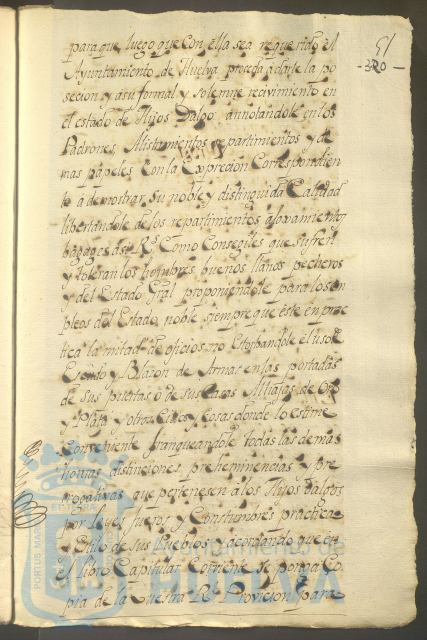 51
-320-
para que luego que con ella sea requerido el
Ayuntamiento de Huelva proceda a darle la po
secion, y a su formal y solemne recivimiento en
el estado de Hijos Dalgo, annotandole en los
Padrones, Alistamientos, repartimientos y de
mas papeles con la Exprecion Correspondien
te a demostrar su noble y distinguida Calidad
libertandole de los repartimientos alojamientos
bagages asi Rs. Como Consegiles que sufren
y toleran los hombres buenos llanos pecheros
y del Estado Gral proponiendole para los em
pleos del Estado noble siempre que este en prac
tica la mitad de oficios, no Estorbandole el uso de
Escudo y Blazon de Armas en las portadas
de sus puertas o de sus Casas Alhajas de Oro
y Plata y otros y cosas donde lo estime
Conveniente franqueandole todas las demas
honras distinciones preheminencias y pre
rogativas que pertenesen a los Hijos dalgos
por Leyes fueros y Constumbres practica
y Estilo de sus Pueblos y acordando que en
el libro Capitular Corriente se ponga Co
pia de la Nuestra Rl Provicion para
PORTUS MARIS
Ayuntamiento de
HUELVA